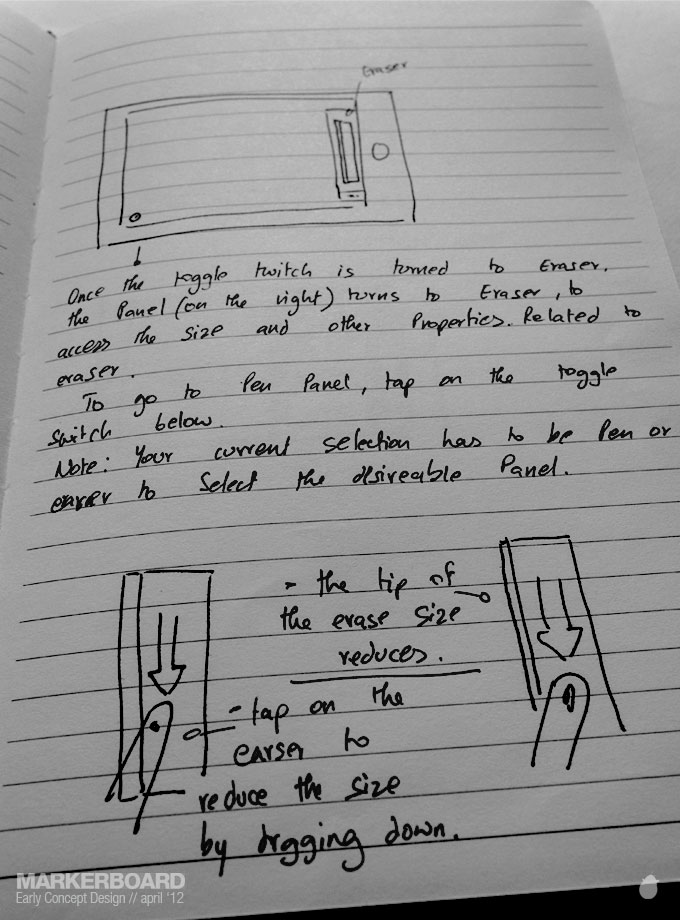 Eraser
Once the toggle twitch is turned to Eraser.
the Panel (on the right) turns to Eraser, to
access the size and other Properties. Related to
eraser.
To go to Pen Panel, tap on the toggle
switch below.
Note: Your current selection has to be Pen or
earser to Select the desireable Panel.
- the tip of
the erase size
reduces.
- tap on the
earser to
reduce the size
by drgging down.
MARKERBOARD
Early Concept Design // april '12